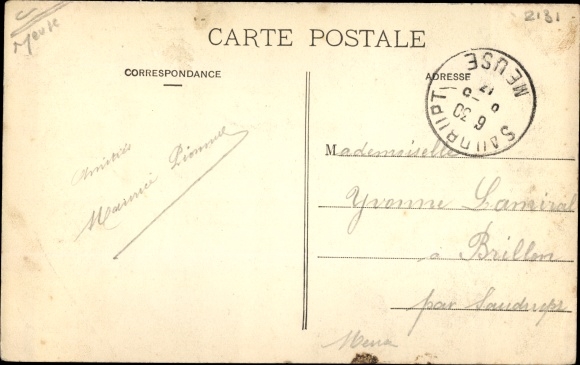 Meuse
2131
CARTE POSTALE
CORRESPONDANCE
ADRESSE
SAUDRUPT MEUSE
9 30
Amitiés
Mademoiselle
Yvonne Lamiral
à Brillon
par Saudrupt
Meuse